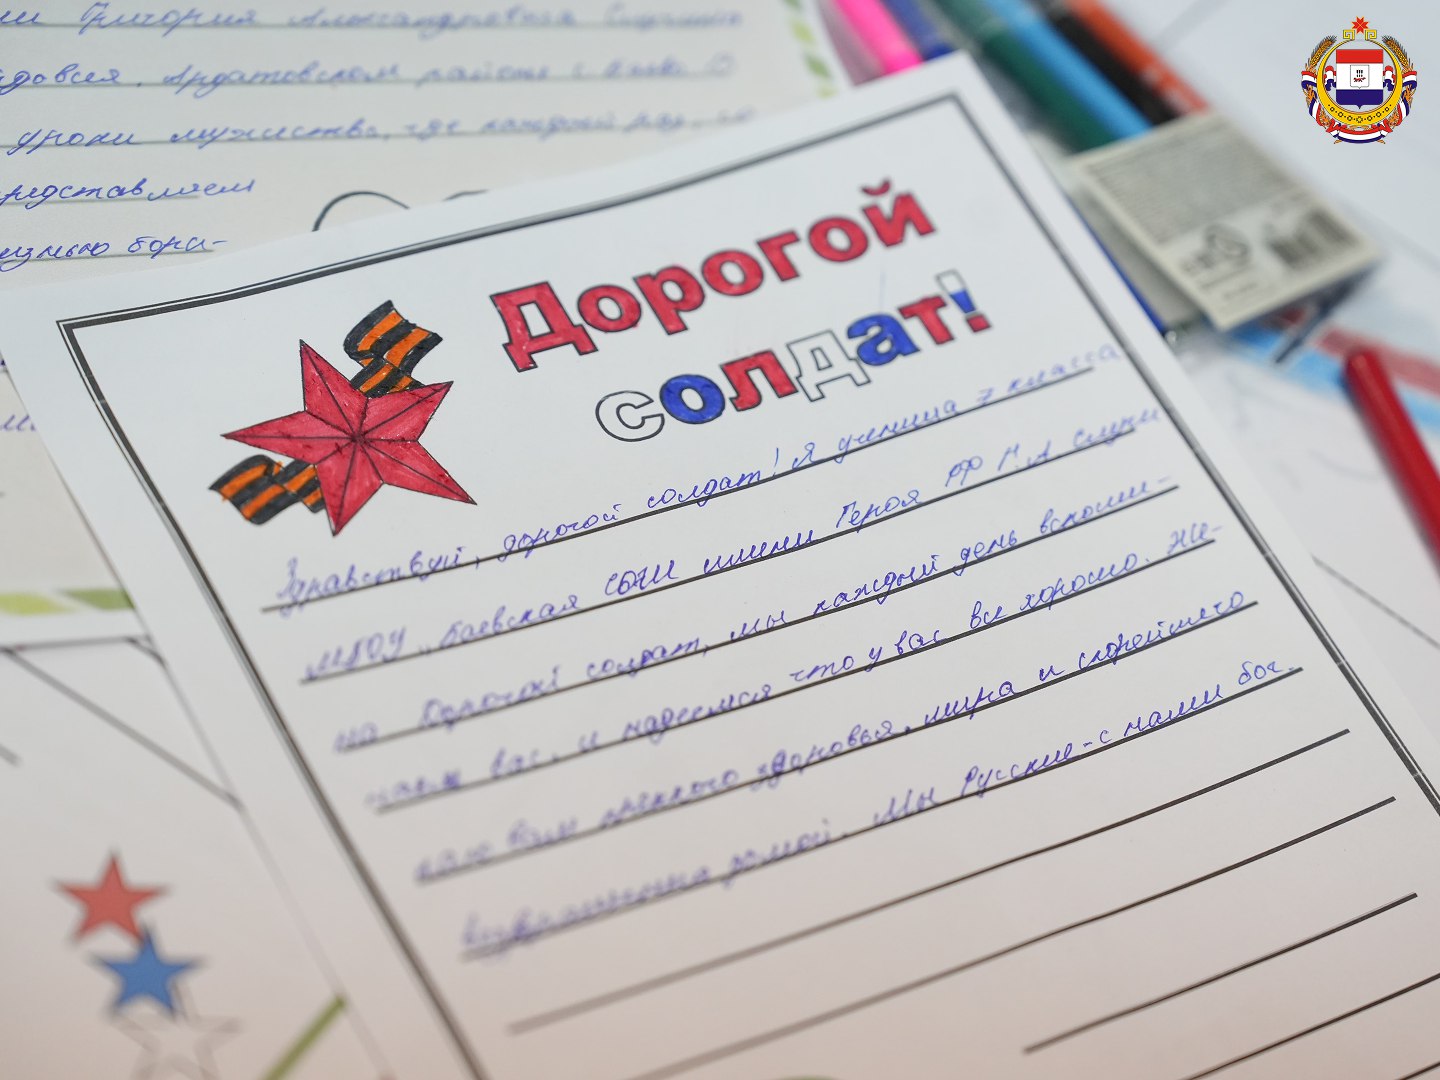 ни Григория Александровича
Ардатовском районе с
уроки мужества, где каждый раз,
представляем
бори-
Дорогой
солдат!
Здравствуй, дорогой солдат! Я ученица 7 класса
МБОУ „Баевская СОШ имени Героя РФ Г.А Слуки
на Дорогой солдат, мы каждый день вспоми-
наем вас, и надеемся что у вас все хорошо. Же-
лаю вам крепкого здоровья, мира и скорейшего
возвращения домой. Мы Русские - с нами бог.